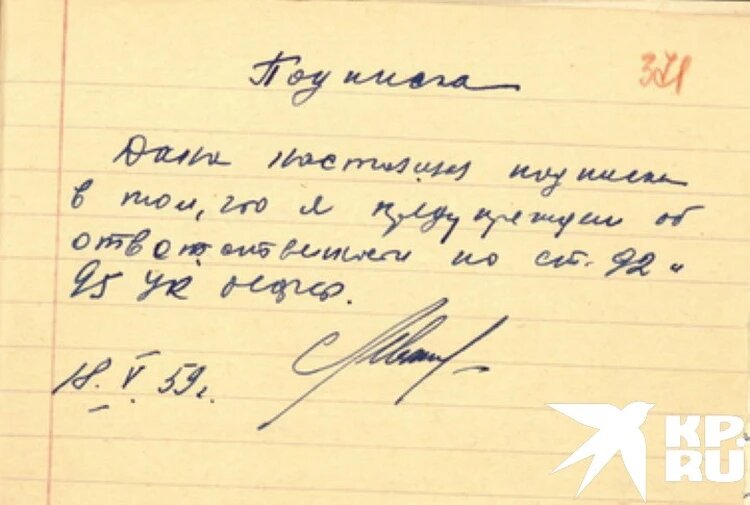 Подписка
371
Дана настоящая подписка
в том, что я предупрежден об
ответственности по ст. 92 и
95 УК РСФСР.
18. V. 59 г.
KP.
RU